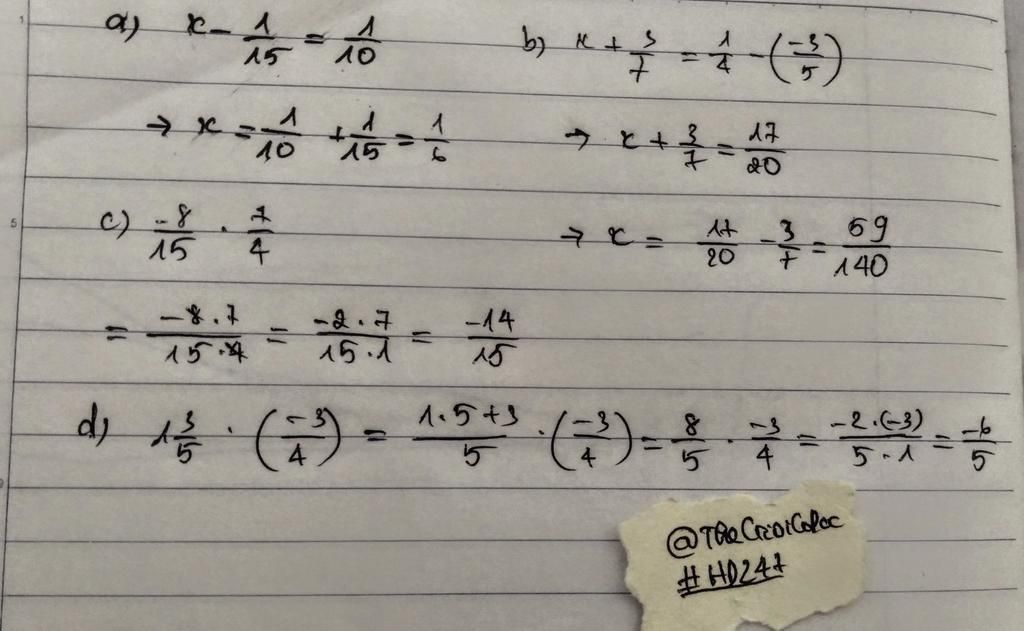 a) x - 1/15 = 1/10
→ x = 1/10 + 1/15 = 1/6
b) x + 3/7 = 1/4 - (-3/5)
→ x + 3/7 = 17/20
→ x = 17/20 - 3/7 = 59/140
c) -8/15 · 7/4
= -8.7/15.4 = -2.7/15.1 = -14/15
d) 1 3/5 · (-3/4) = 1.5+3/5 · (-3/4) = 8/5 · -3/4 = -2.(-3)/5.1 = -6/5
#HD247